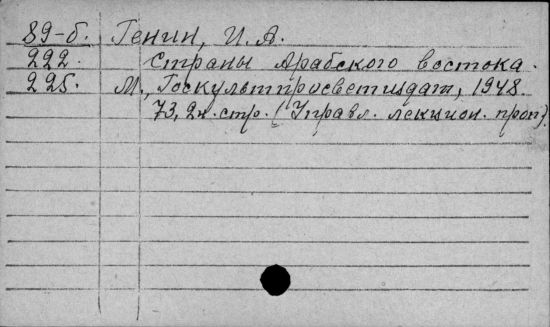 89-б. Генин, И. А.
222. Страны Арабского востока.
225. М., Госкультпросветиздат, 1948.
73, 2н. стр. (Управл. лекцион. проп)